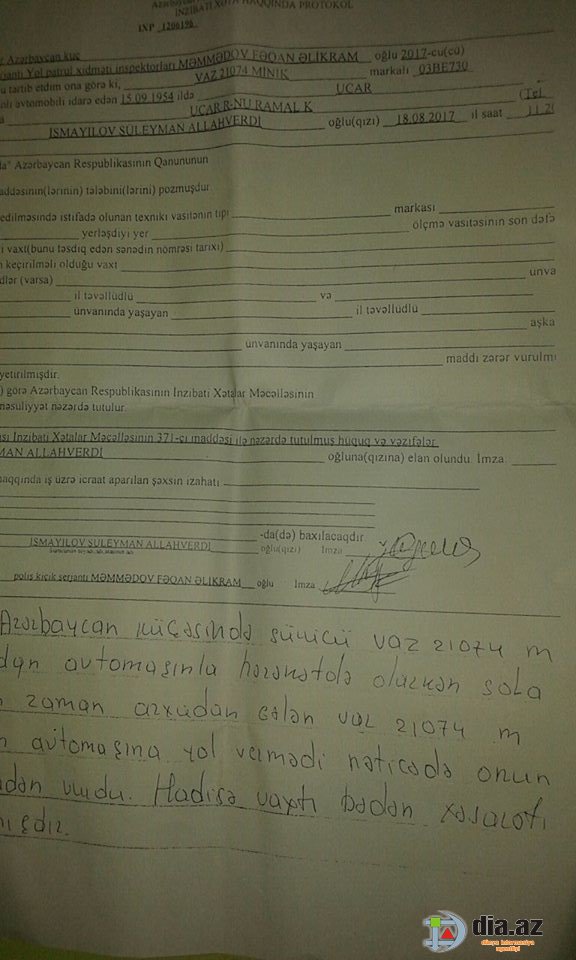 İNZİBATİ XƏTA HAQQINDA PROTOKOL
İXP 1206196
Azərbaycan küç
Yol patrul xidməti inspektorları MƏMMƏDOV FƏQAN ƏLİKRAM oğlu 2017-cü(cu)
tərtib etdim ona görə ki, VAZ 21074 MİNİK markalı 03BE730
avtomobili idarə edən 15.09.1954 ildə UCAR (Tel
UCAR R-NU RAMAL K
İSMAYILOV SÜLEYMAN ALLAHVERDİ oğlu(qızı) 18.08.2017 il saat 11.2
Azərbaycan Respublikasının Qanununun
addəsinin(lərinin) tələbini(lərini) pozmuşdur.
edilməsində istifadə olunan texniki vasitənin tipi markası
yerləşdiyi yer ölçmə vasitəsinin son dəfə
vaxtı(bunu təsdiq edən sənədin nömrəsi tarixi)
keçirilməli olduğu vaxt
dlər (varsa) ünva
il təvəllüdlü və
ünvanında yaşayan il təvəllüdlü
aşka
ünvanında yaşayan
maddi zərər vurulmu
yetirilmişdir.
) görə Azərbaycan Respublikasının İnzibati Xətalar Məcəlləsinin
məsuliyyət nəzərdə tutulur.
İnzibati Xətalar Məcəlləsinin 371-ci maddəsi ilə nəzərdə tutulmuş hüquq və vəzifələr
MAN ALLAHVERDİ oğluna(qızına) elan olundu. İmza.
haqqında iş üzrə icraat aparılan şəxsin izahatı
-da(də) baxılacaqdır
İSMAYILOV SÜLEYMAN ALLAHVERDİ oğlu(qızı) İmza
polis kiçik serjantı MƏMMƏDOV FƏQAN ƏLİKRAM oğlu İmza
Azərbaycan küçəsində sürücü vaz 21074 m
dan avtomaşınla hərəkətdə olarkən sola
zaman arxadan gələn vaz 21074 m
avtomaşına yol vermədi nəticədə onun
dən vurdu. Hadisə vaxtı bədən xəsarəti
ışdır.
dia.az
dünya informasiya agentliyi